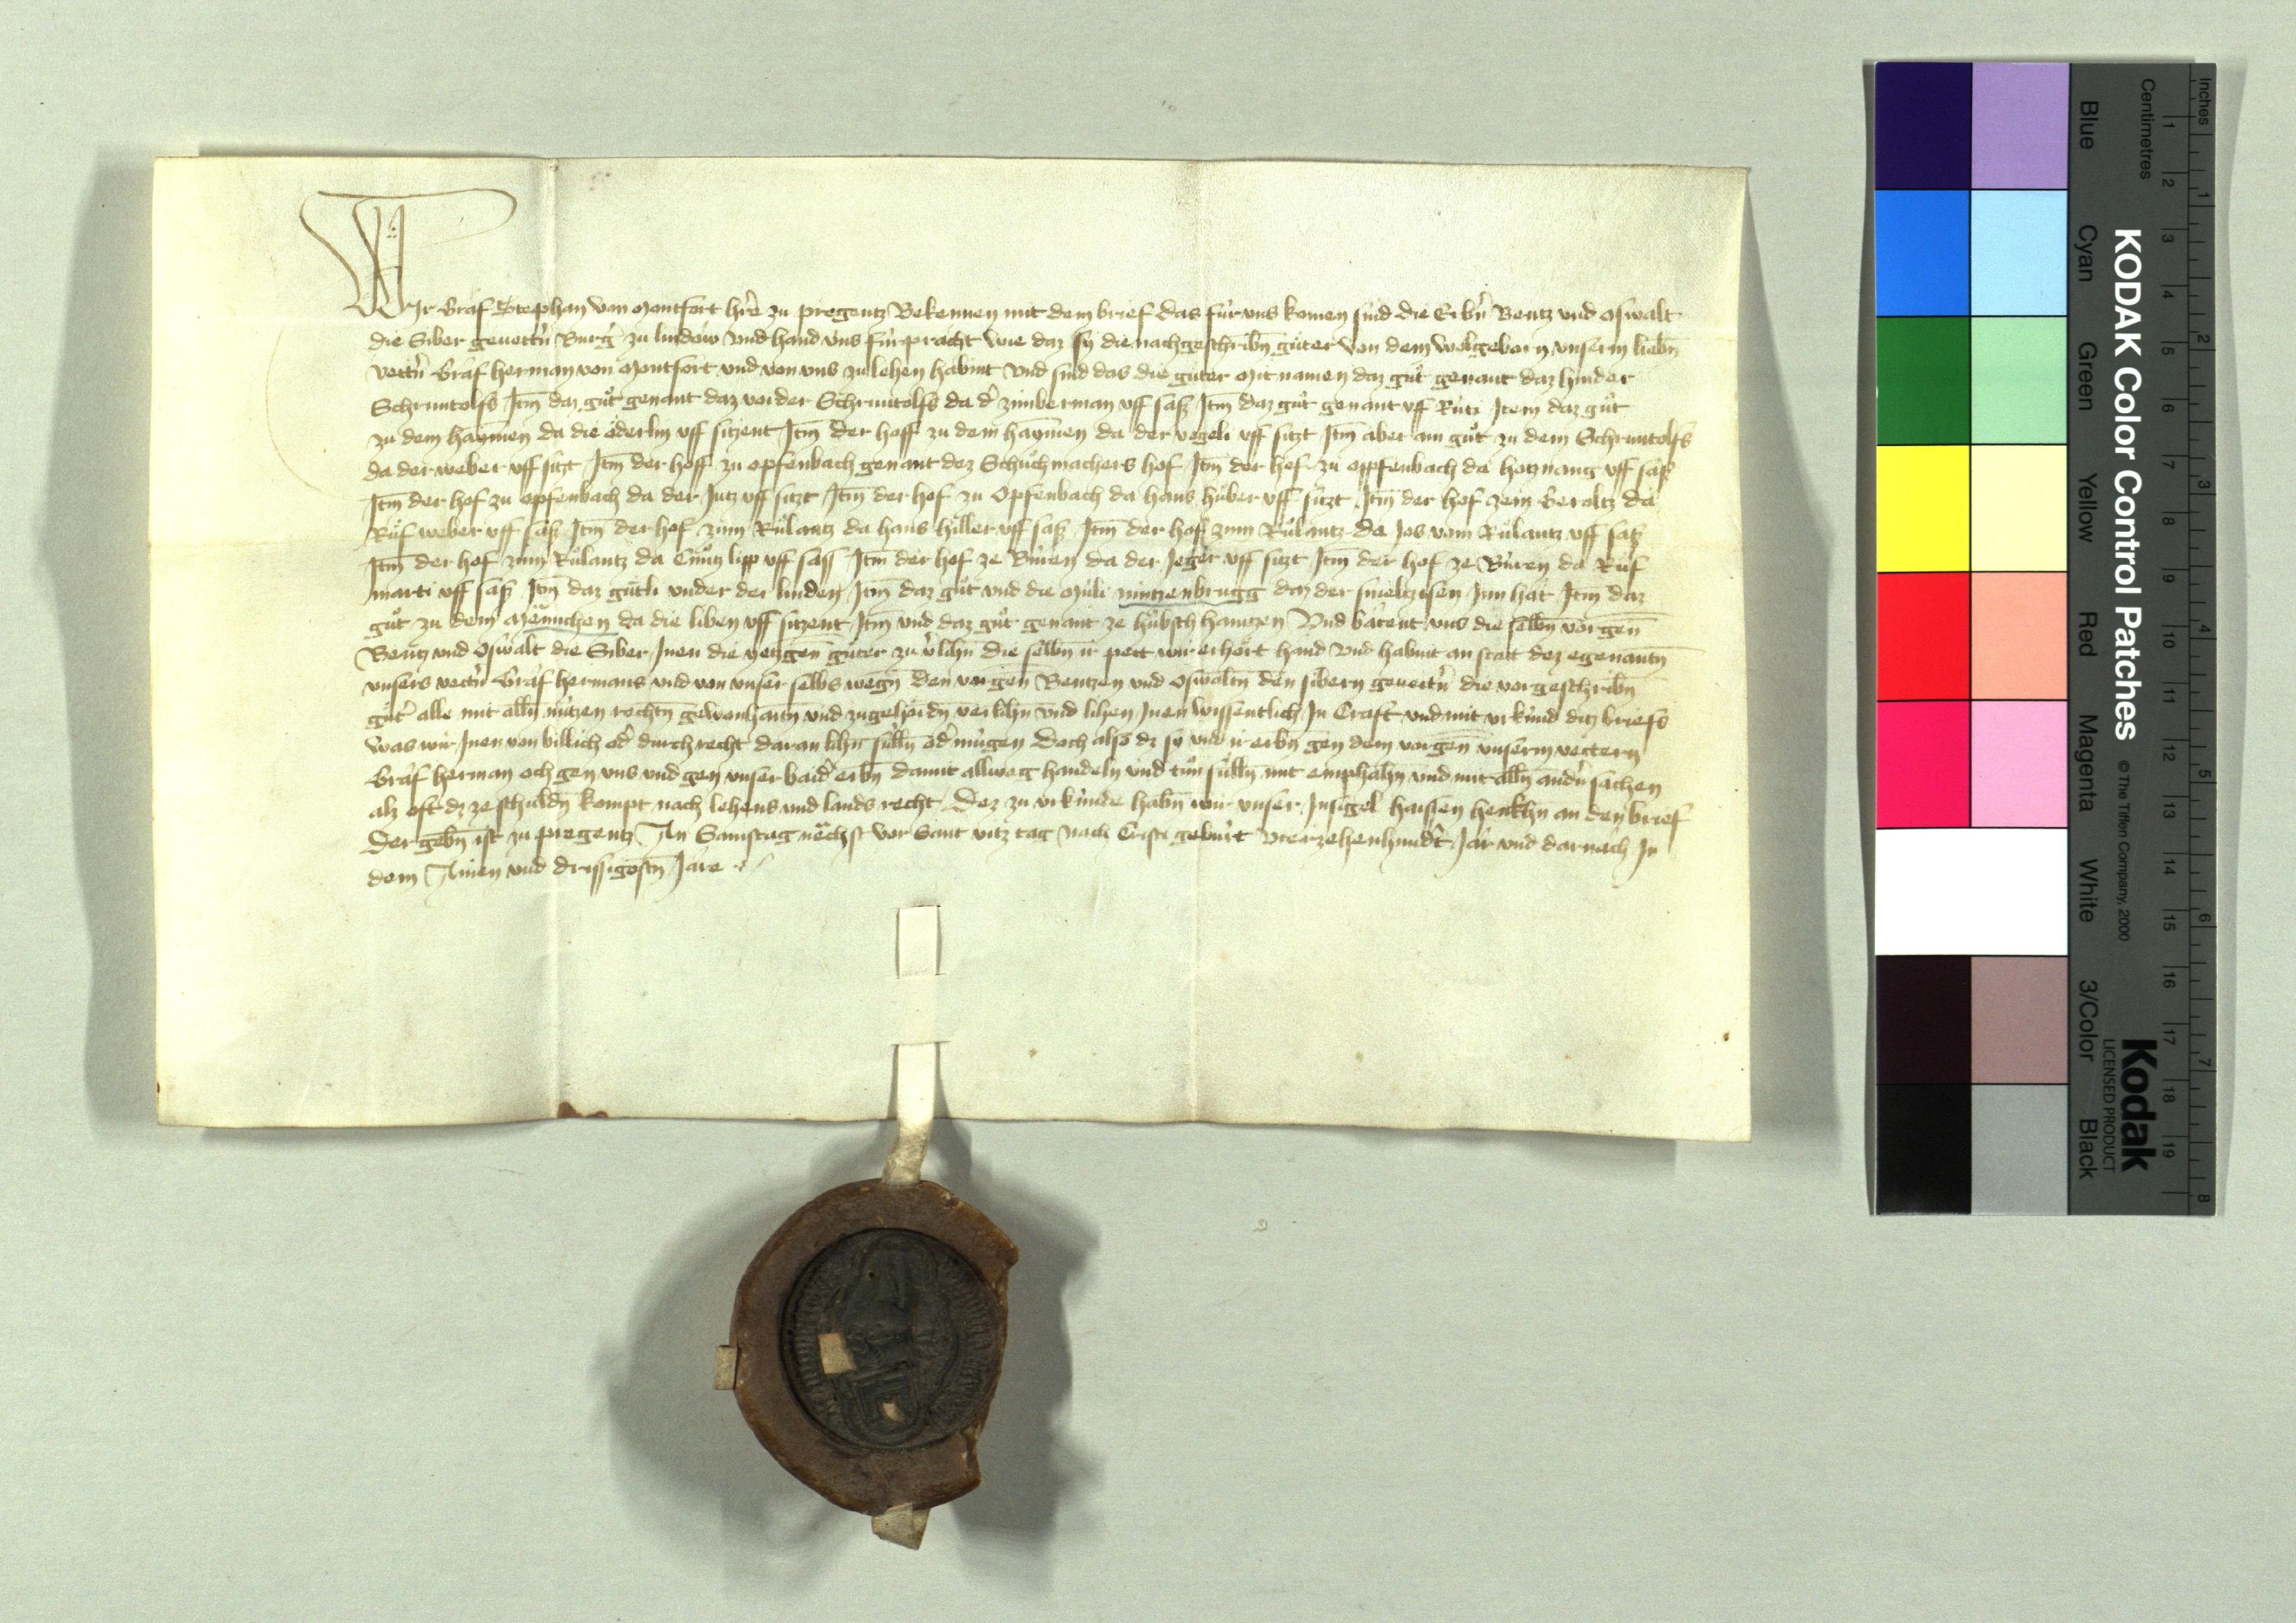 Wir Graf Stephan von Montfort hr̄e zu pregentz Bekennen mit dem brief das für uns komen sind die Erbn̄ Bentz und Oswalt
die Siber gevettn̄ Burg̛ zu lindow und hand uns fürpracht wie daz sy die nachgeschribn̄ gûter von dem wolgeborn unserm liebn̄
vettn̄ Graf herman von Montfort und von uns zu lehen habint und sind das die gûter Mit namen daz gůt genant daz hinder
Schruntolfs Itm̄ daz gůt genant daz vorder Schruntolfs da d̛ zimberman uff sasz Itm̄ daz gůt genant uff Rüti Item daz gůt
zu dem haym̄en da die öderlin uff sitzent Itm̄ der hoff zu dem haym̄en da der vögeli uff sitzt Itm̄ aber ain gůt zu dem Schruntolfs
da der weber uff sitzt Itm̄ der hoff zu opfenbach genant dez Schůchmachers hof Itm̄ der hof zu opfenbach da hotznang uff sasz
Itm̄ der hof zu opfenbach da der Jutz uff sitzt Itm̄ der hof zu Opfenbach da hans hůber uff sitzt Itm̄ der hof zem Geroltz da
Růf weber uff sasz Itm̄ der hof zum Růlantz da hans hiller uff sasz Itm̄ der hof zum Růlantz da Jos vom Růlantz uff sasz
Itm̄ der hof zum Růlantz da Cůntz lipp uff sass Itm̄ der hof ze Büren da der Jeger uff sitzt Itm̄ der hof ze Büren da Růf
marti uff sasz Itm̄ daz gůtli under der linden Itm̄ daz gůt und die Müli nintzenbrugg daz der smeltzisen Inn hat Itm̄ daz
gůt zu dem Männchen da die liben uff sitzent Itm̄ und daz gůt genant ze hübsch hantzen Und batent uns die selbn̄ vorgen̄
Bentz und Oswalt die Siber Inen die yetzgen̄ gûter zu v̛lihn̄ die selbn̄ ir pett wir erhört hand und habint an statt dez egenantn̄
unsers vettn̄ Graf hermans und von unser selbs wegn̄ den vorgen̄ Bentzen und Oswaltn̄ den sibern gevettn̄ die vorgeschribn̄
gût̛ alle mit alln̄ nützen rechtn̄ gewonhaitn̄ und zugehördn̄ verlihn̄ und lihen Inen wissentlich In Craft und mit urkünd ditz briefs
Was wir Inen von billich od̛ durch recht daran lihn̄ sülln̄ od̛ mügen Doch also dz sy und ir erbn̄ gen dem vorgen̄ unserm vettern
Graf herman och gen uns und gen unser baid̛ erbn̄ damit allweg handeln und tůn sülln̄ mit emphahn̄ und mit alln̄ andn̄ sachen
alz oft dz ze schuldn̄ kompt nach lehens und lands recht Dez zu urkünde habn̄ wir unser Insigel haissen henkhn̄ an den brief
Der gebn̄ ist zu pregentz An Samstag nächst vor Sant vitz tag nach Cristi gebürt vierzehenhund̛t Jar und darnach In
dem Ainen und drissigostn̄ Jare
KODAK Color Control Patches
© The Tiffen Company, 2000
Kodak
LICENSED PRODUCT
Inches
Centimetres
1 2 3 4 5 6 7 8
1 2 3 4 5 6 7 8 9 10 11 12 13 14 15 16 17 18 19
Blue
Cyan
Green
Yellow
Red
Magenta
White
3/Color
Black